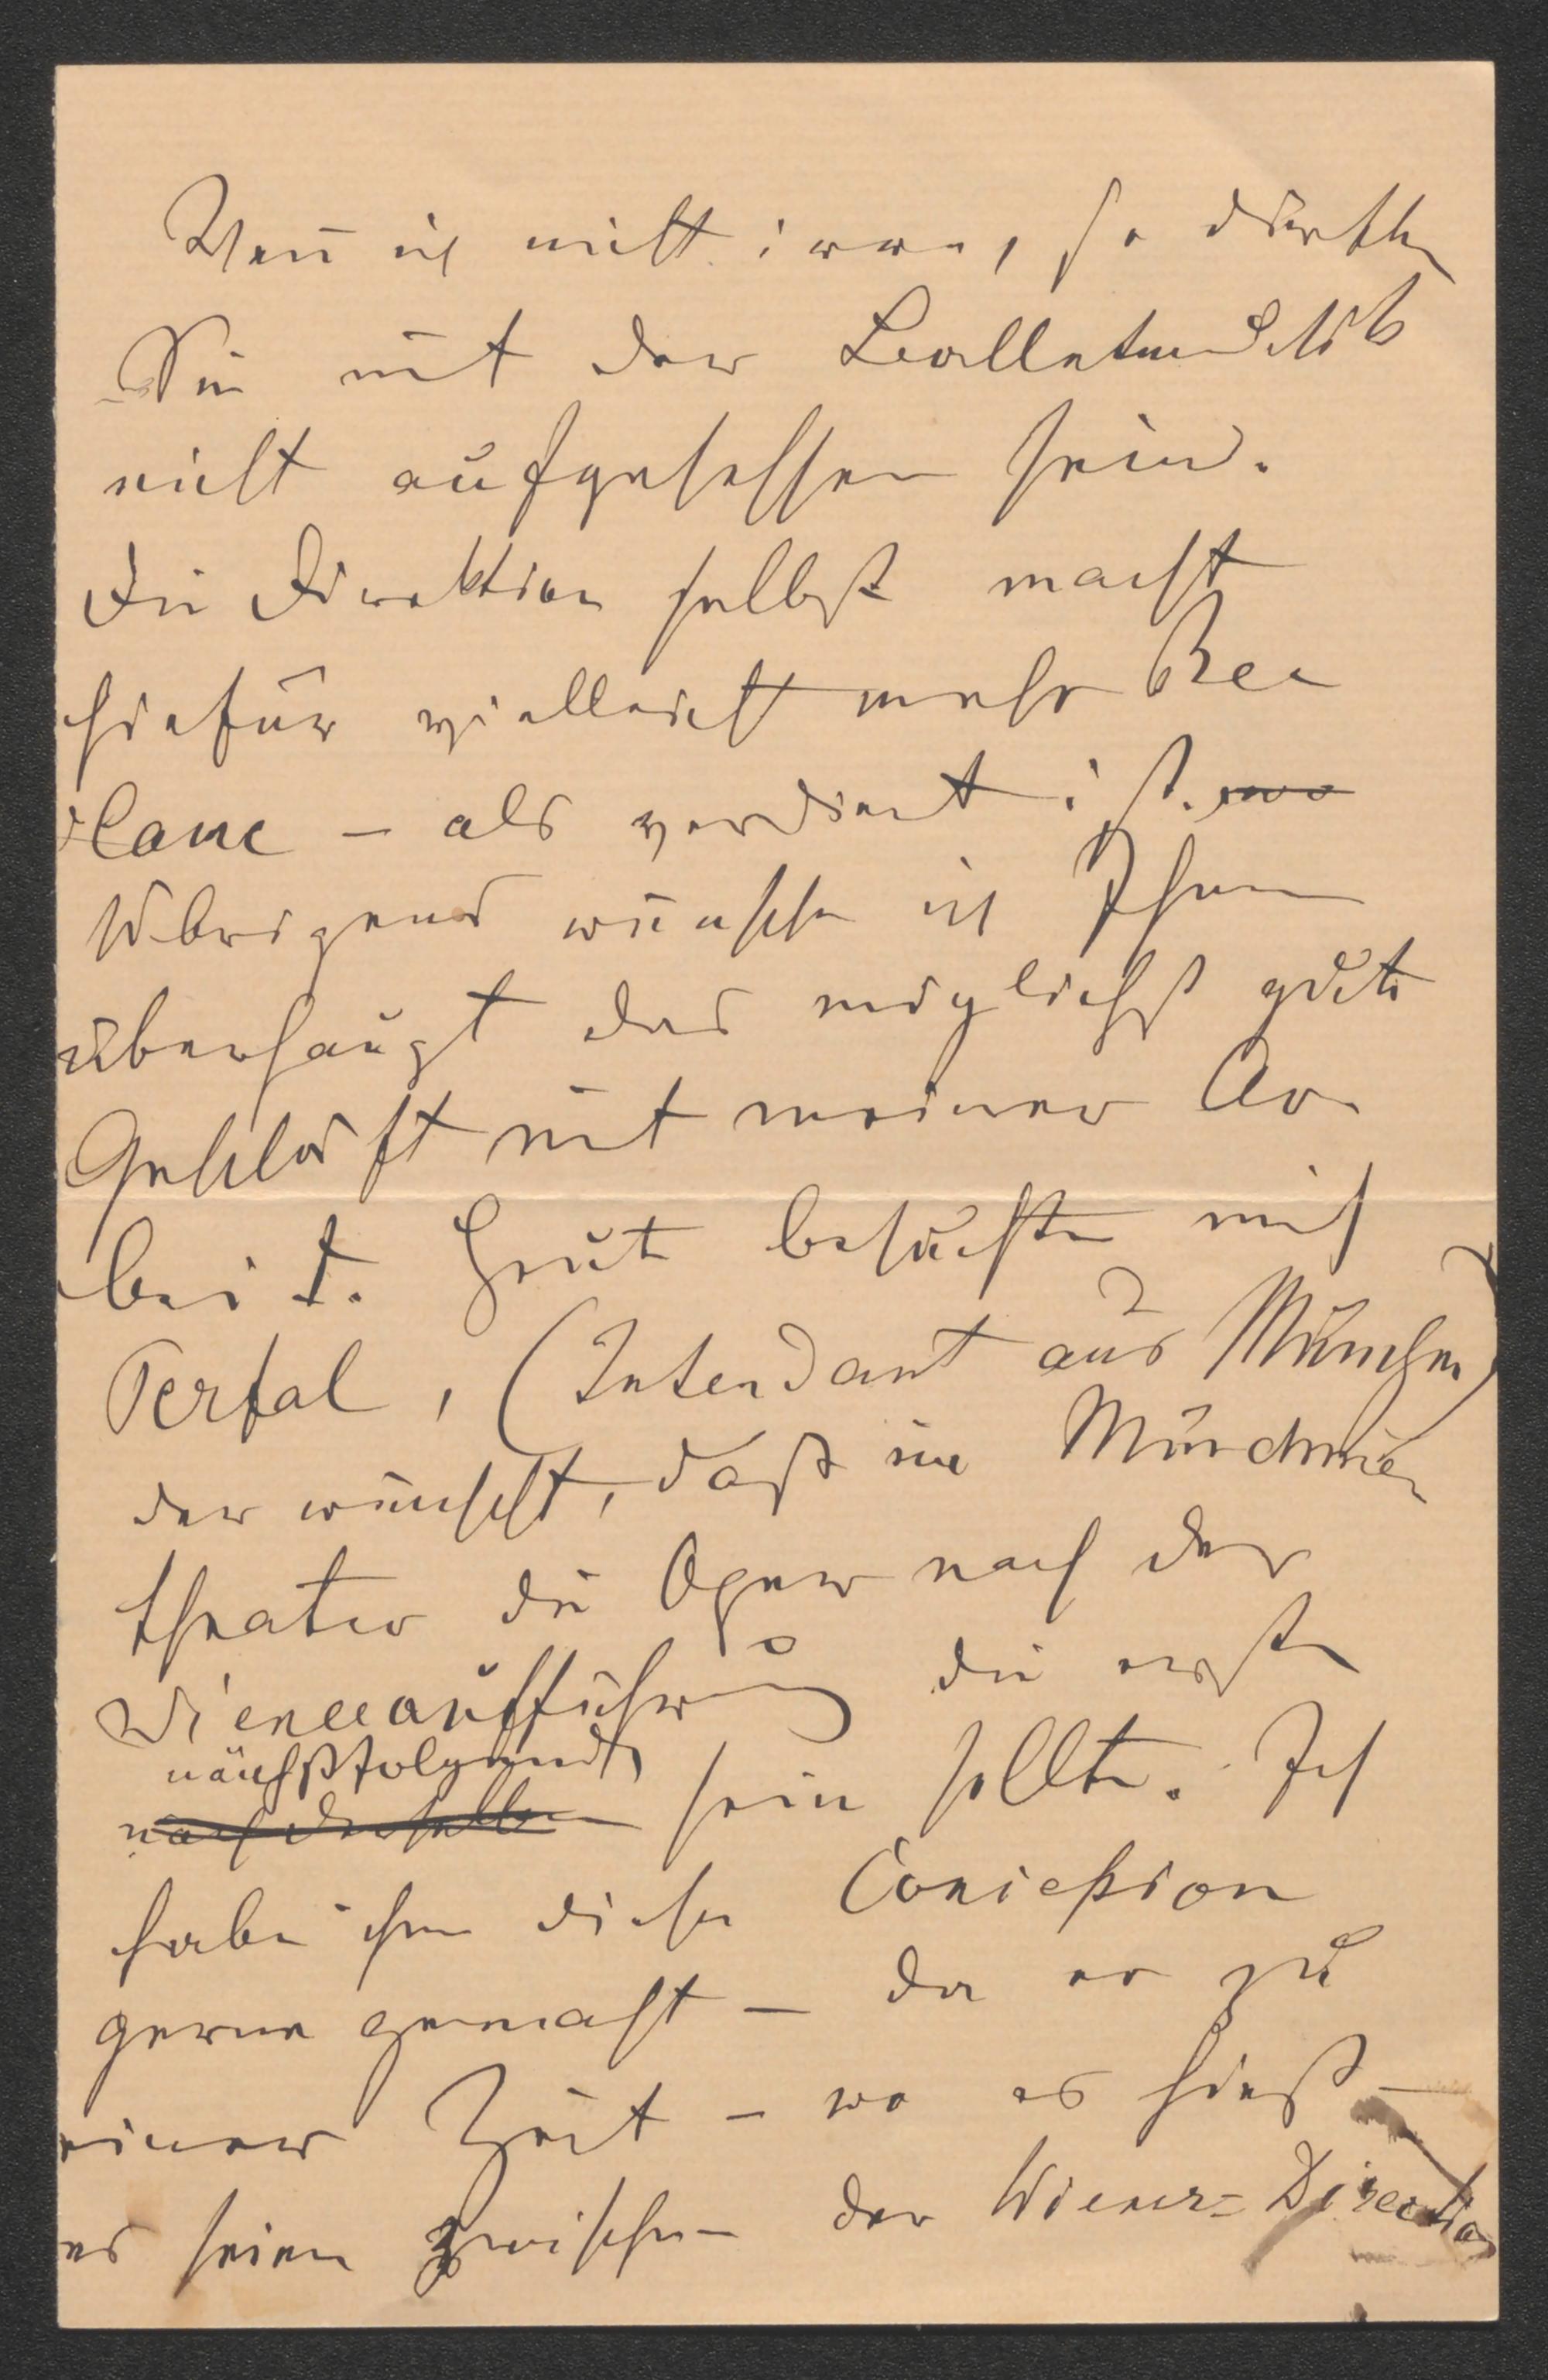 Wenn ich nicht irre, so dürften
Sie mit der Balletmusik
nicht aufgesessen sein.
Die Direktion selbst macht
hiefür vielleicht mehr Rec
lame – als verdient ist.
Übrigens wünsche ich Ihnen
überhaupt das möglichst gute
Geschäft mit meiner Ar
beit. Heute besuchte mich
Perfal, (Intendant aus München)
der wünscht, daß im Münchner
theater die Oper nach der
Wieneraufführung die erste
nächstfolgende
nach derselben sein sollte. Ich
habe ihm diese Concession
gerne gemacht – da er zu
einer Zeit – wo es hieß –
es seien zwischen der Wiener-Direction